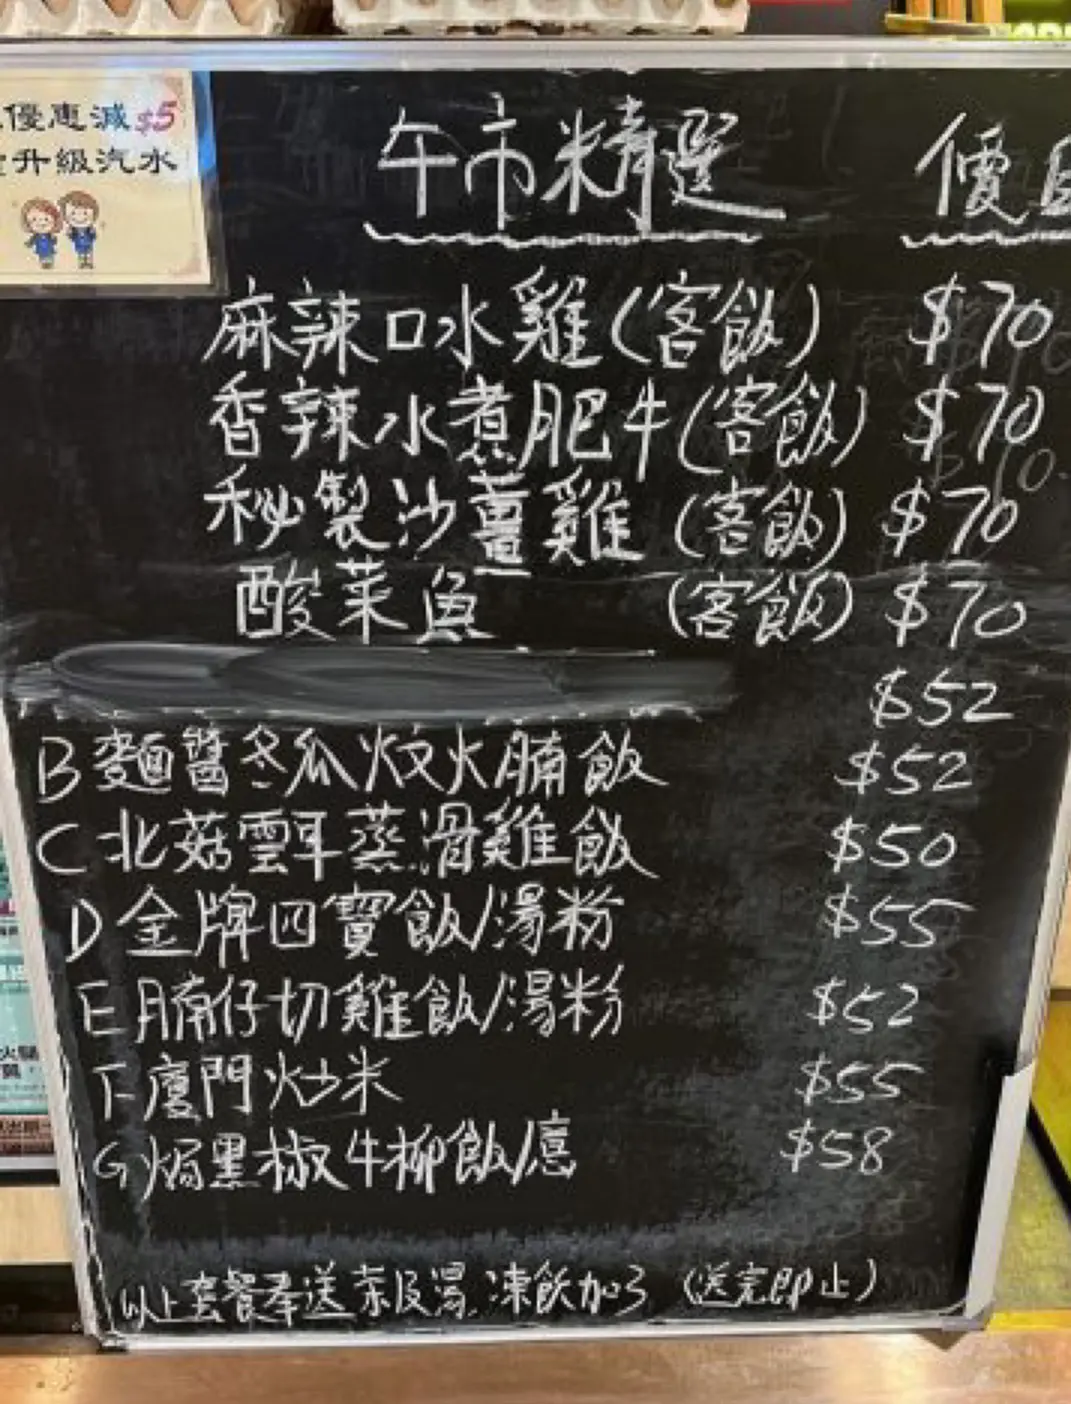 優惠減$5
升級汽水
午市精選 優
麻辣口水雞(客飯) $70
香辣水煮肥牛(客飯) $70
秘製沙薑雞(客飯) $70
酸菜魚(客飯) $70
$52
B 麵醬冬瓜炆火腩飯 $52
C 北菇雲耳蒸滑雞飯 $50
D 金牌四寶飯/湯粉 $55
E 腩仔切雞飯/湯粉 $52
F 廈門炒米 $55
G 焗黑椒牛柳飯/意 $58
以上套餐奉送茶及湯, 凍飲加3 (送完即止)